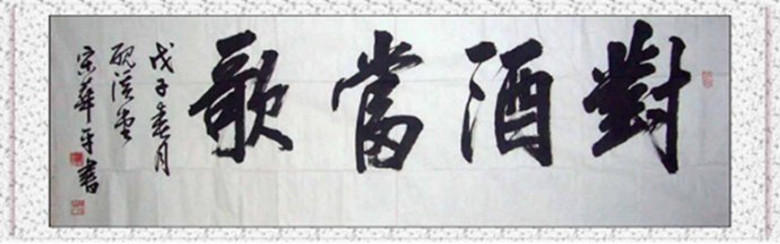 對酒當歌
戊子春月
硯溪堂
宗華平書